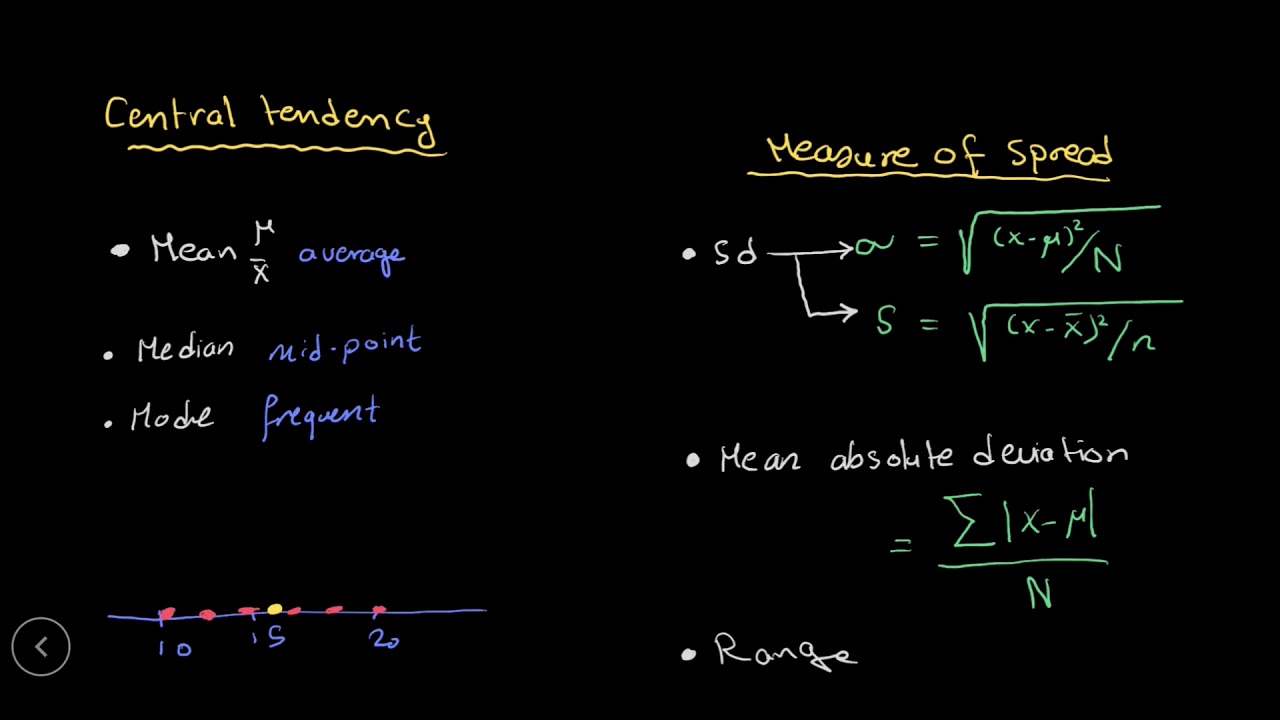 Central tendency
• Mean μ x̄ average
• Median mid-point
• Mode frequent
10 15 20
Measure of spread
• Sd → σ = √(x-μ)²/N
S = √(x-x̄)²/n
• Mean absolute deviation
= ∑|x-μ| / N
• Range